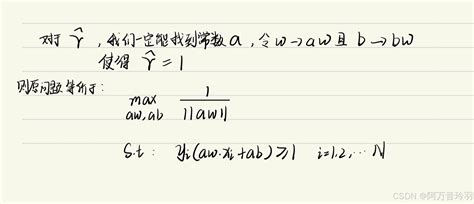 对于 γ̂ ,我们一定能找到常数 a ,令 w→aw 且 b→bw
使得 γ̂ = 1
则原问题等价于:
max 1
aw,ab ||aw||
s.t: yᵢ(aw·xᵢ+ab)≥1 i=1,2,… N
CSDN @阿万音玲羽